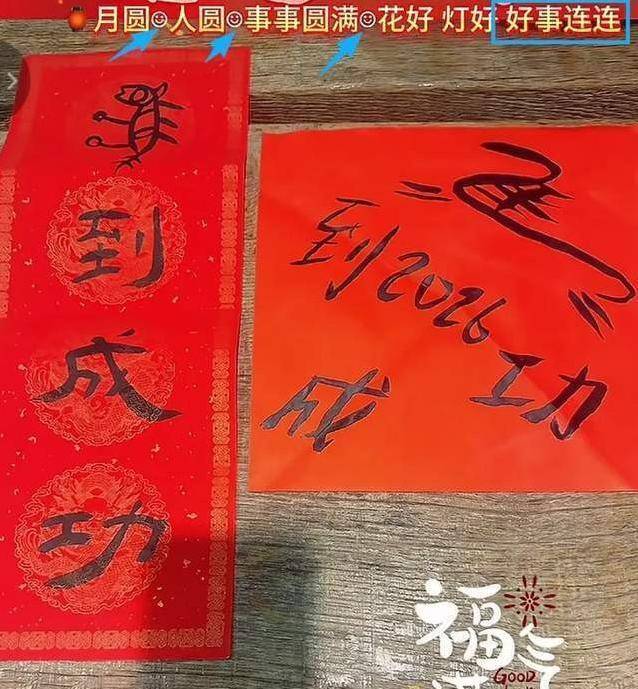 月圆☺人圆☺事事圆满☺花好 灯好 好事连连
到
成
功
到2026
成 功
福
GOOD